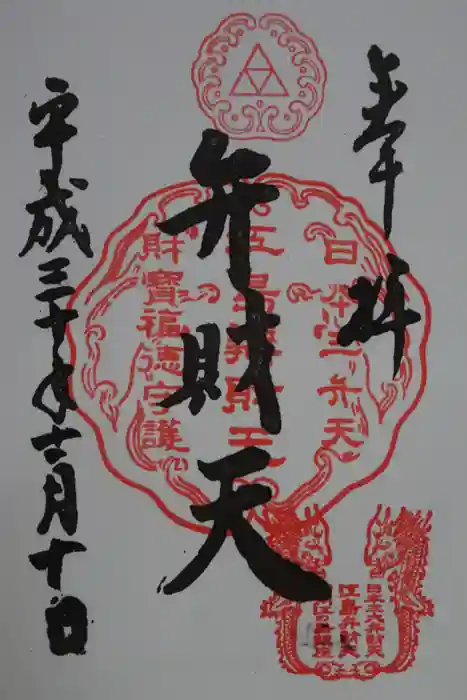 奉拝
日本三弁天
江島弁財天
財寶福徳守護
弁財天
平成三十年十二月十日
江島弁財天